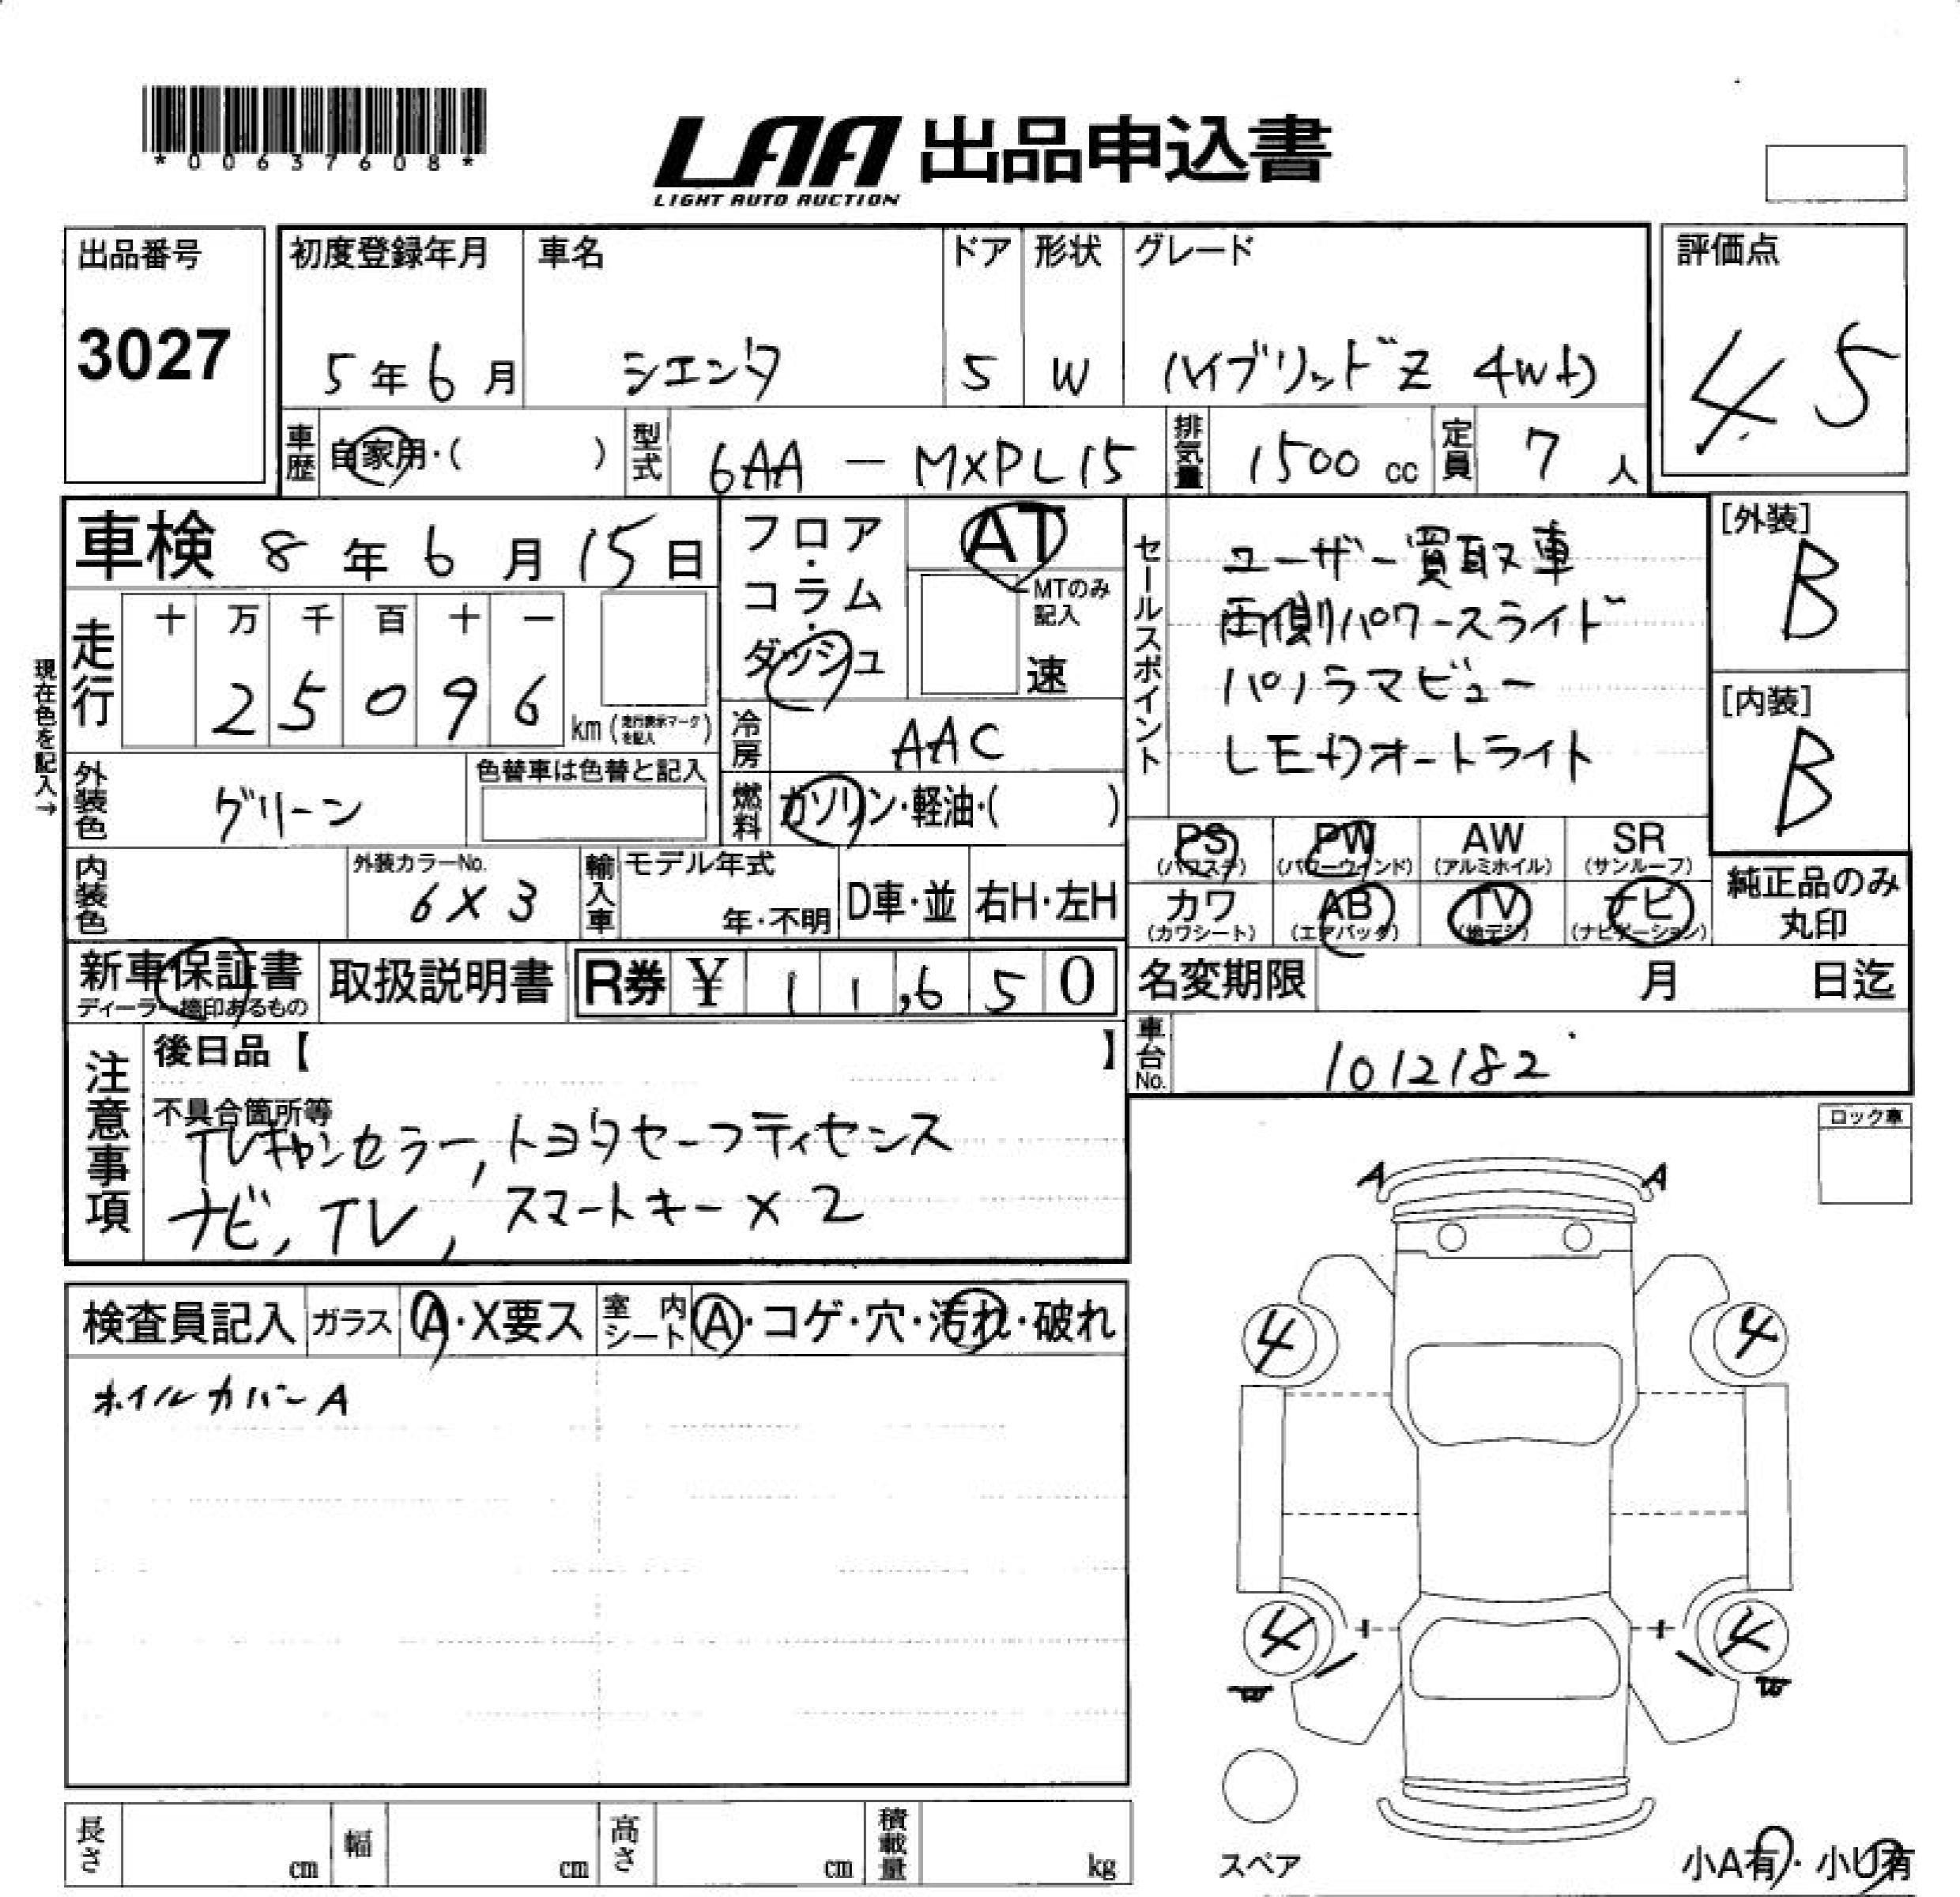 *00637608*
LAA 出品申込書
LIGHT AUTO AUCTION
出品番号
3027
初度登録年月
5年6月
車名
シエンタ
ドア
5
形状
W
グレード
ハイブリッドZ 4WD
評価点
4.5
車歴
自家用・( )
型式
6AA - MXPL15
排気量
1500 cc
定員
7 人
車検 8年6月15日
現在色を記入→
走行
十 万 千 百 十 一
2 5 0 9 6
km (走行表示マークを記入)
フロア・コラム・ダッシュ
AT
MTのみ記入
速
冷房
AAC
燃料
ガソリン・軽油・( )
外装色
グリーン
色替車は色替と記入
内装色
外装カラーNo.
6X3
輸入車
モデル年式
年・不明
D車・並
右H・左H
セールスポイント
ユーザー買取車
両側パワースライド
パノラマビュー
LEDオートライト
[外装]
B
[内装]
B
PS
(パワステ)
PW
(パワーウィンド)
AW
(アルミホイル)
SR
(サンルーフ)
カワ
(カワシート)
AB
(エアバック)
TV
(地デジ)
ナビ
(ナビゲーション)
純正品のみ
丸印
新車保証書
ディーラー捺印あるもの
取扱説明書
R券 ¥ 11,650
名変期限 月 日迄
車台No.
1012182
注意事項
後日品【 】
不具合箇所等
TVキャンセラー, トヨタセーフティセンス
ナビ, TV, スマートキー×2
検査員記入
ガラス
A・X要ス
室内シート
A・コゲ・穴・汚れ・破れ
ホイルカバーA
ロック車
A A
4 4
4 4
スペア
小A有・小U有
長さ cm
幅 cm
高さ cm
積載量 kg